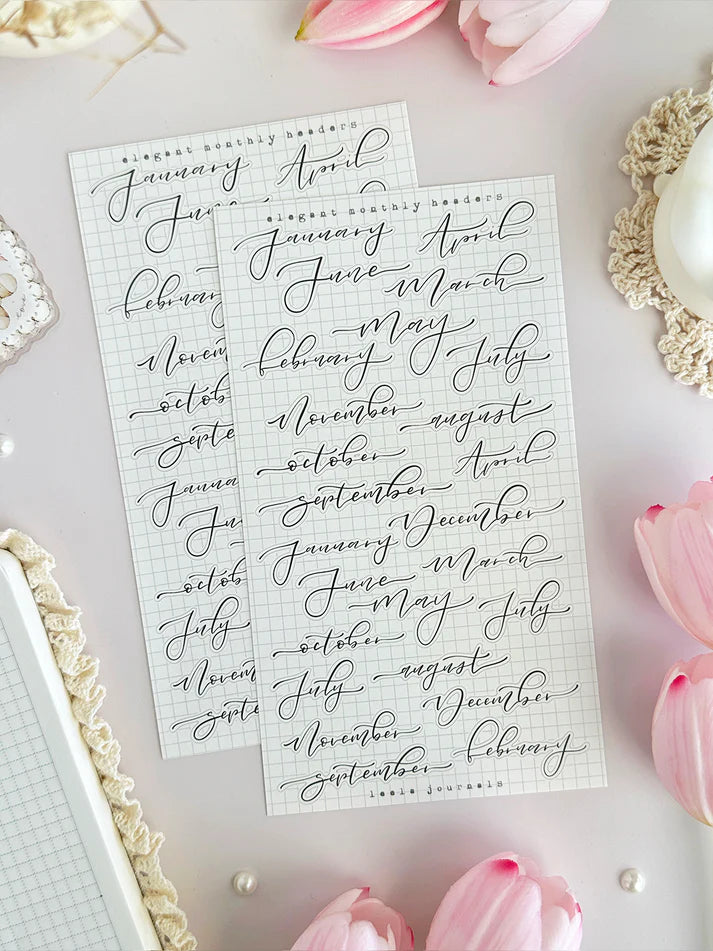 elegant monthly headers
January April
Jun
february
Novem
octob
septe
Janua
Ju
octob
July
Novem
septe
elegant monthly headers
January April
June March
May
february July
November august
october April
september
December
January
June March
May July
october
July august
December
November
september february
leela journals